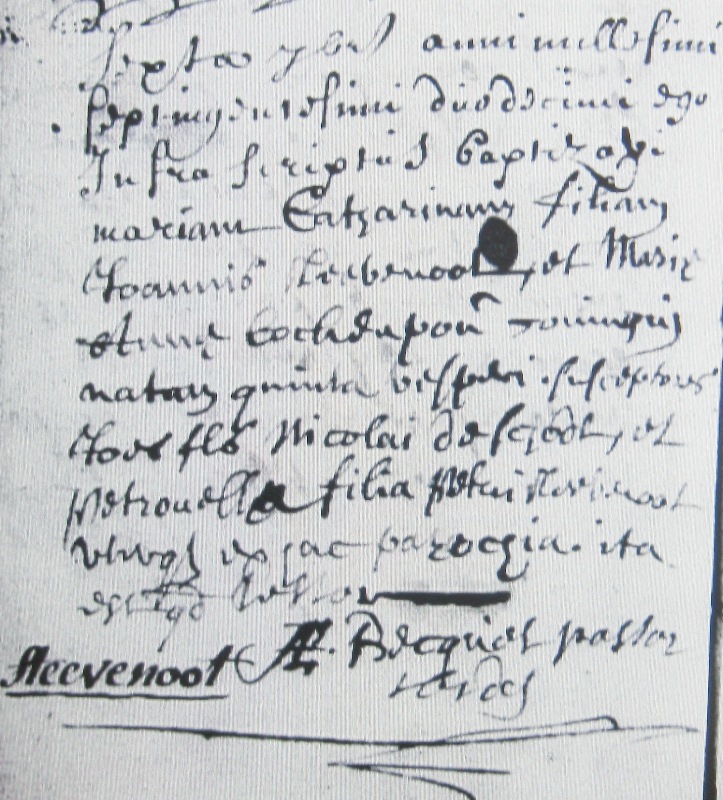 sexta 7bris anni millesimi
septingentesimi duodecimi ego
Infra scriptus baptizavi
mariam Catharinam filiam
Joannis Sleevenoot, et Marie
conjugum
natam quinta vesperi susceptores
Joes fls Nicolai de scodt, et
petronella filia petri Sleevenoot
ex hac parochia. ita
est
Sleevenoot Becquet pastor